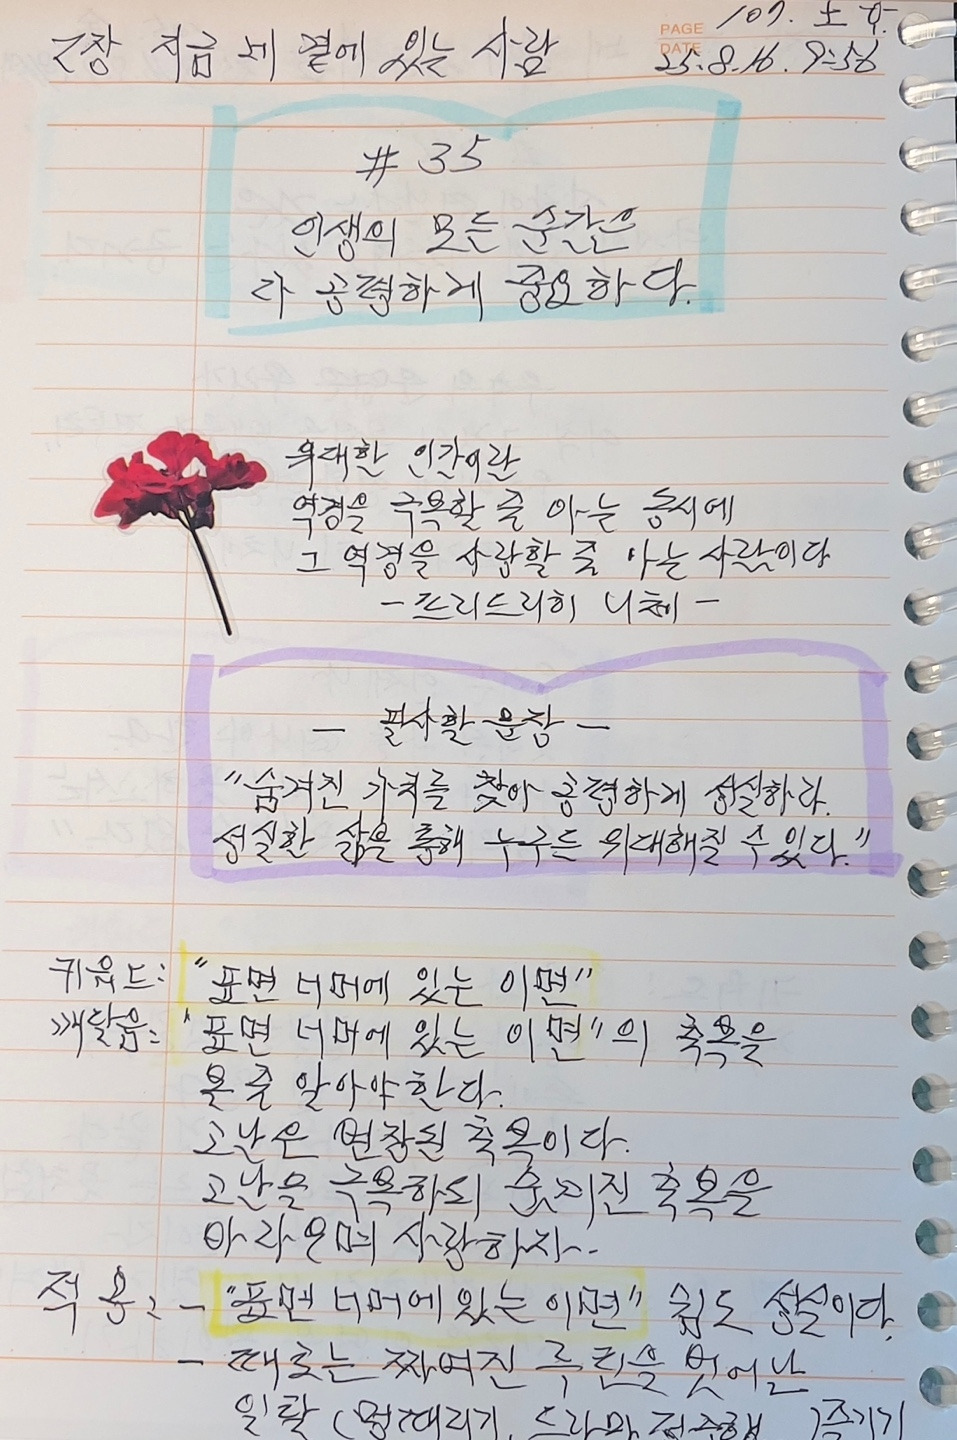 2장 지금 네 곁에 있는 사람
PAGE 107. 土
DATE 25.8.16. 9:56
# 35
인생의 모든 순간은
다 공평하게 중요하다.
위대한 인간이란
역경을 극복할 줄 아는 동시에
그 역경을 사랑할 줄 아는 사람이다
- 프리드리히 니체 -
- 필사할 문장 -
"숨겨진 가치를 찾아 공평하게 성실하라.
성실한 삶을 통해 누구든 위대해질 수 있다."
키워드: "표면 너머에 있는 이면"
깨달음: "표면 너머에 있는 이면"의 축복을
볼 줄 알아야 한다.
고난은 변장된 축복이다.
고난을 극복하되 숨겨진 축복을
바라보며 사랑하자.
적용: - "표면 너머에 있는 이면" 쉼도 성실이다.
- 때로는 짜여진 루틴을 벗어난
일탈 (멍때리기, 드라마 정주행 ) 즐기기